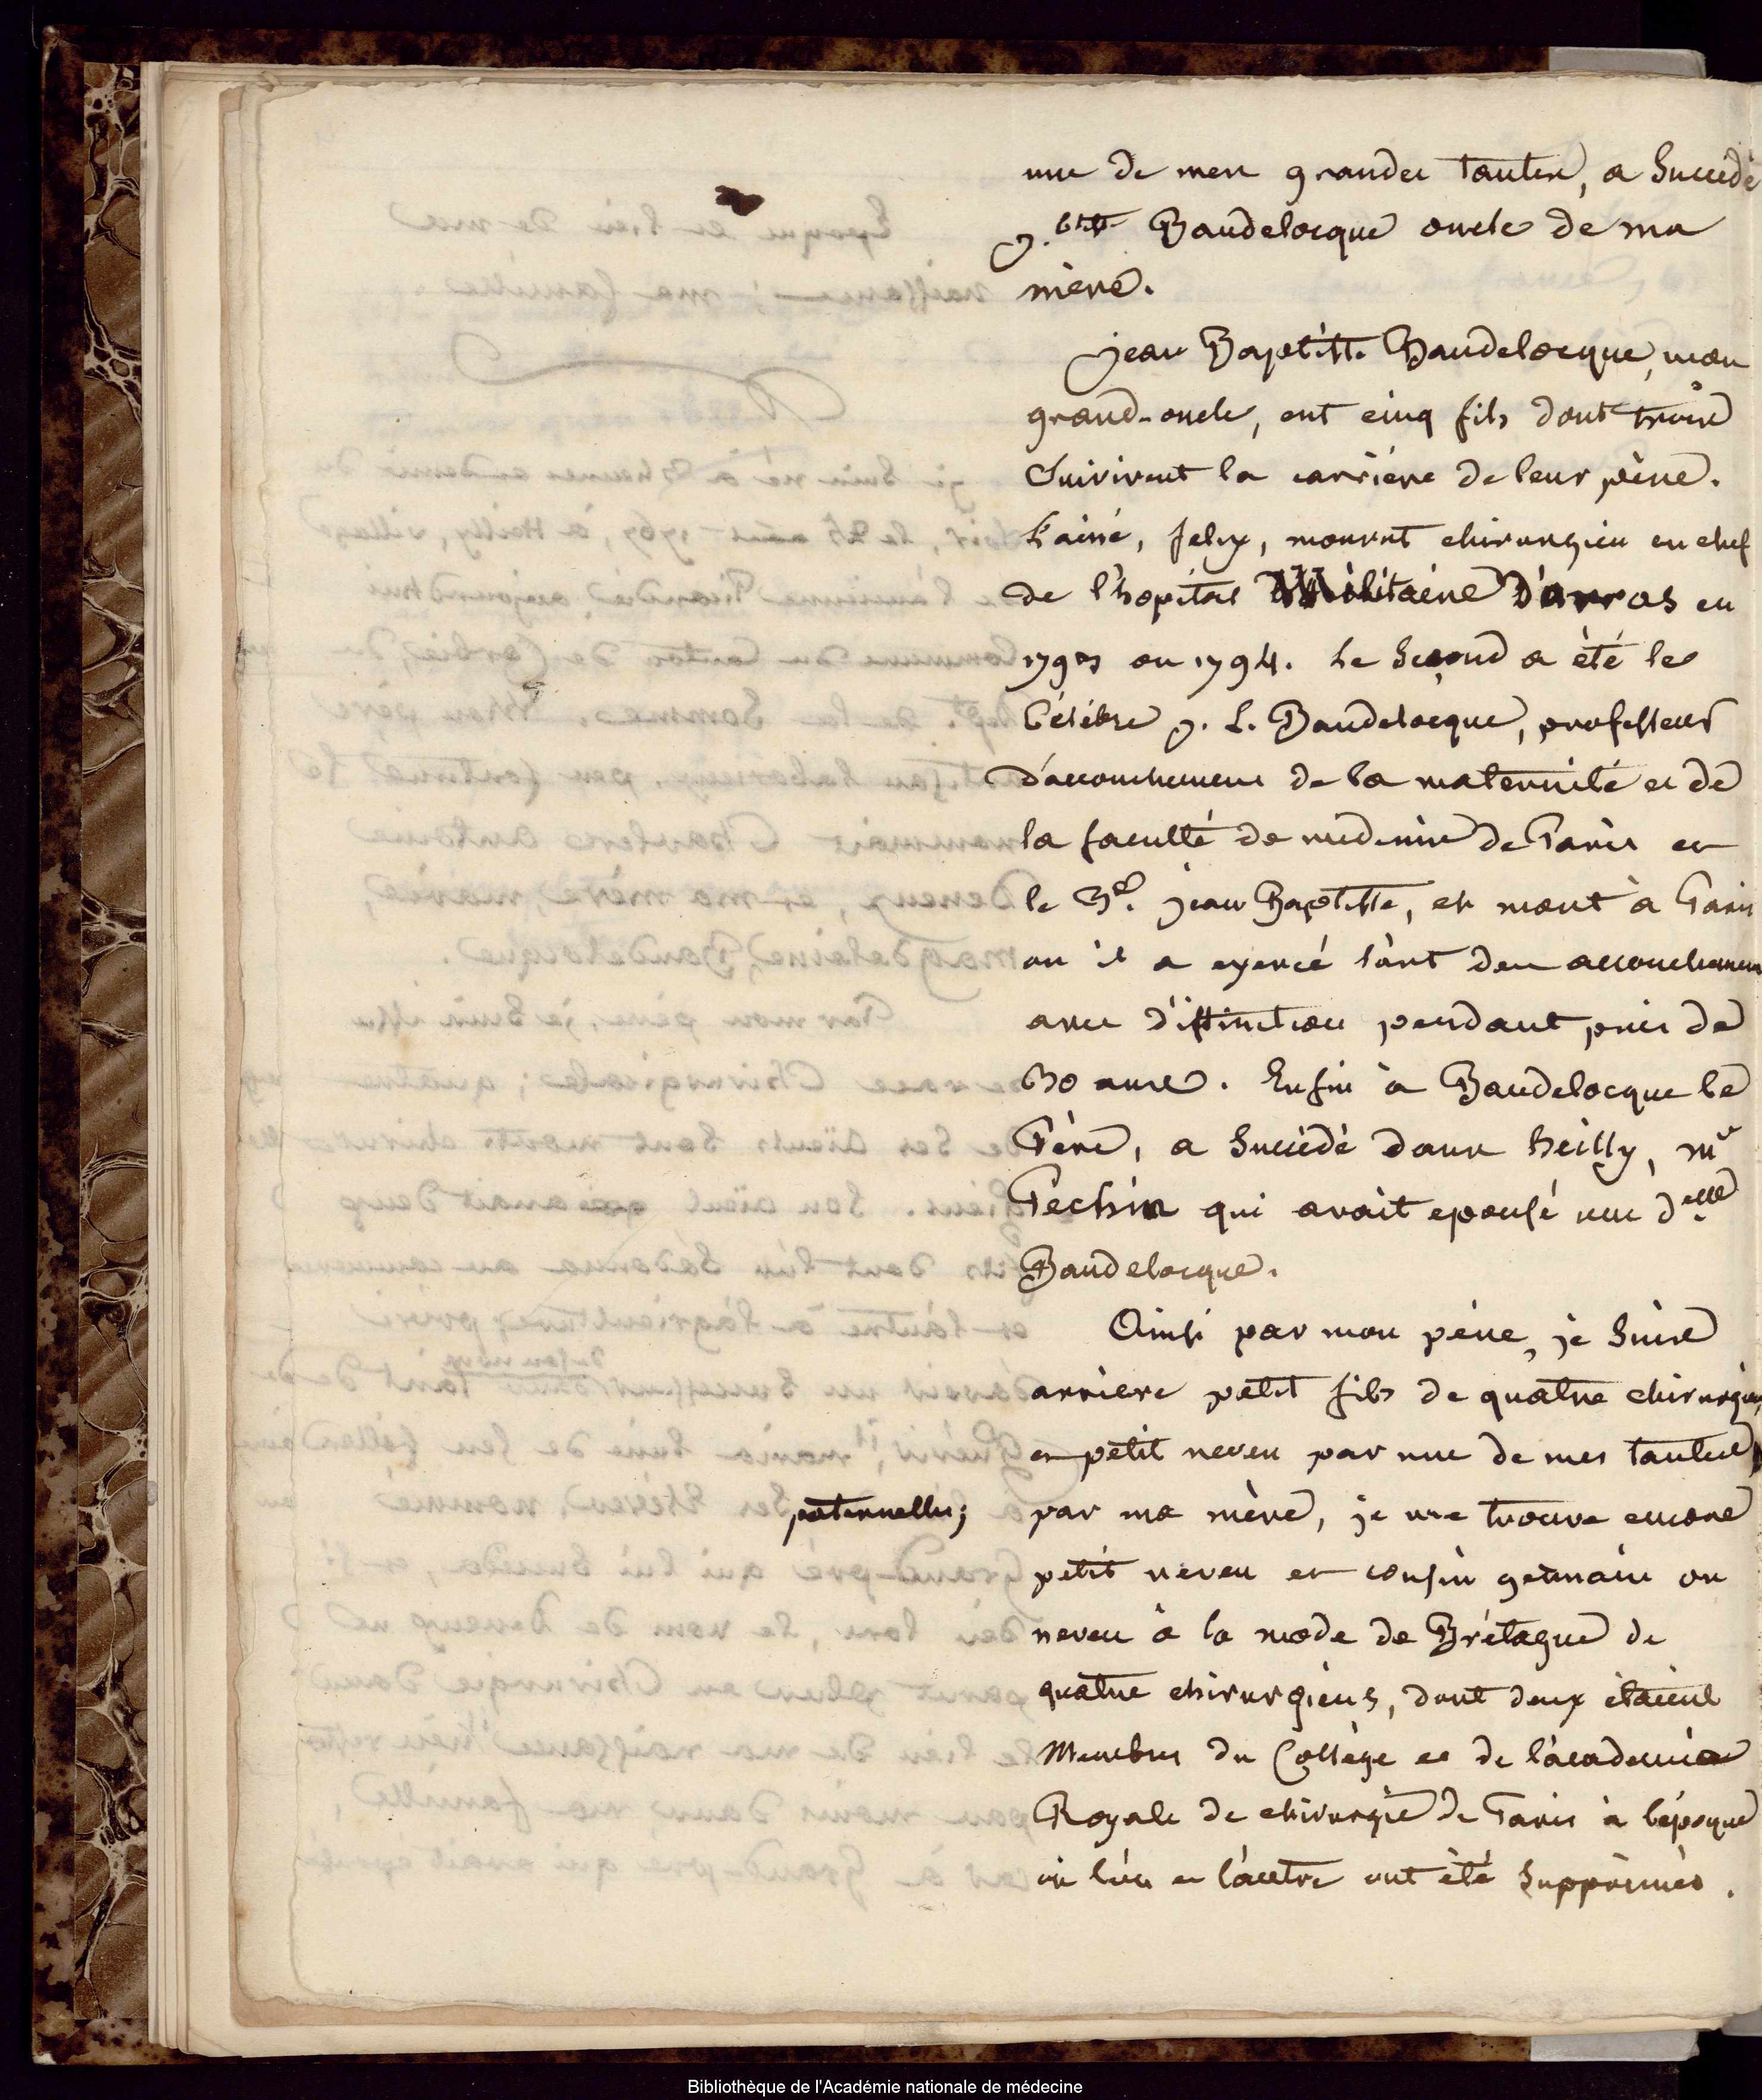 une de mes grandes tantes, a Succédé
j. btte Baudelocque oncle de ma
mère.
jean Baptiste Baudelocque, mon
grand-oncle, eut cinq fils dont trois
Suivirent la carrière de leur père.
L'ainé, felix, mourut chirurgien en chef
de l'hopital Militaire D'arras en
1793 ou 1794. Le Second a été le
Célébre j. L. Baudelocque, professeur
d'accouchemens de la maternité et de
la faculté de medecine de Paris et
le 3e. jean Baptiste, est mort à Paris
ou il a exercé l'art des accouchemens
avec distinction pendant près de
30 ans. Enfin à Baudelocque le
Père, a Succédé dans heilly, mr
Pechin qui avait epousé une delle
Baudelocque.
Ainsi par mon père, je Suis
arriere petit fils de quatre chirurgiens,
et petit neveu par une de mes tantes
paternelles; par ma mère, je me trouve encore
petit neveu et cousin germain ou
neveu à la mode de Brétagne de
quatre chirurgiens, dont deux étaient
Membres du Collège et de l'academie
Royale de chirurgie de Paris à l'époque
où l'un et l'autre ont été Supprimés.
Bibliothèque de l'Académie nationale de médecine